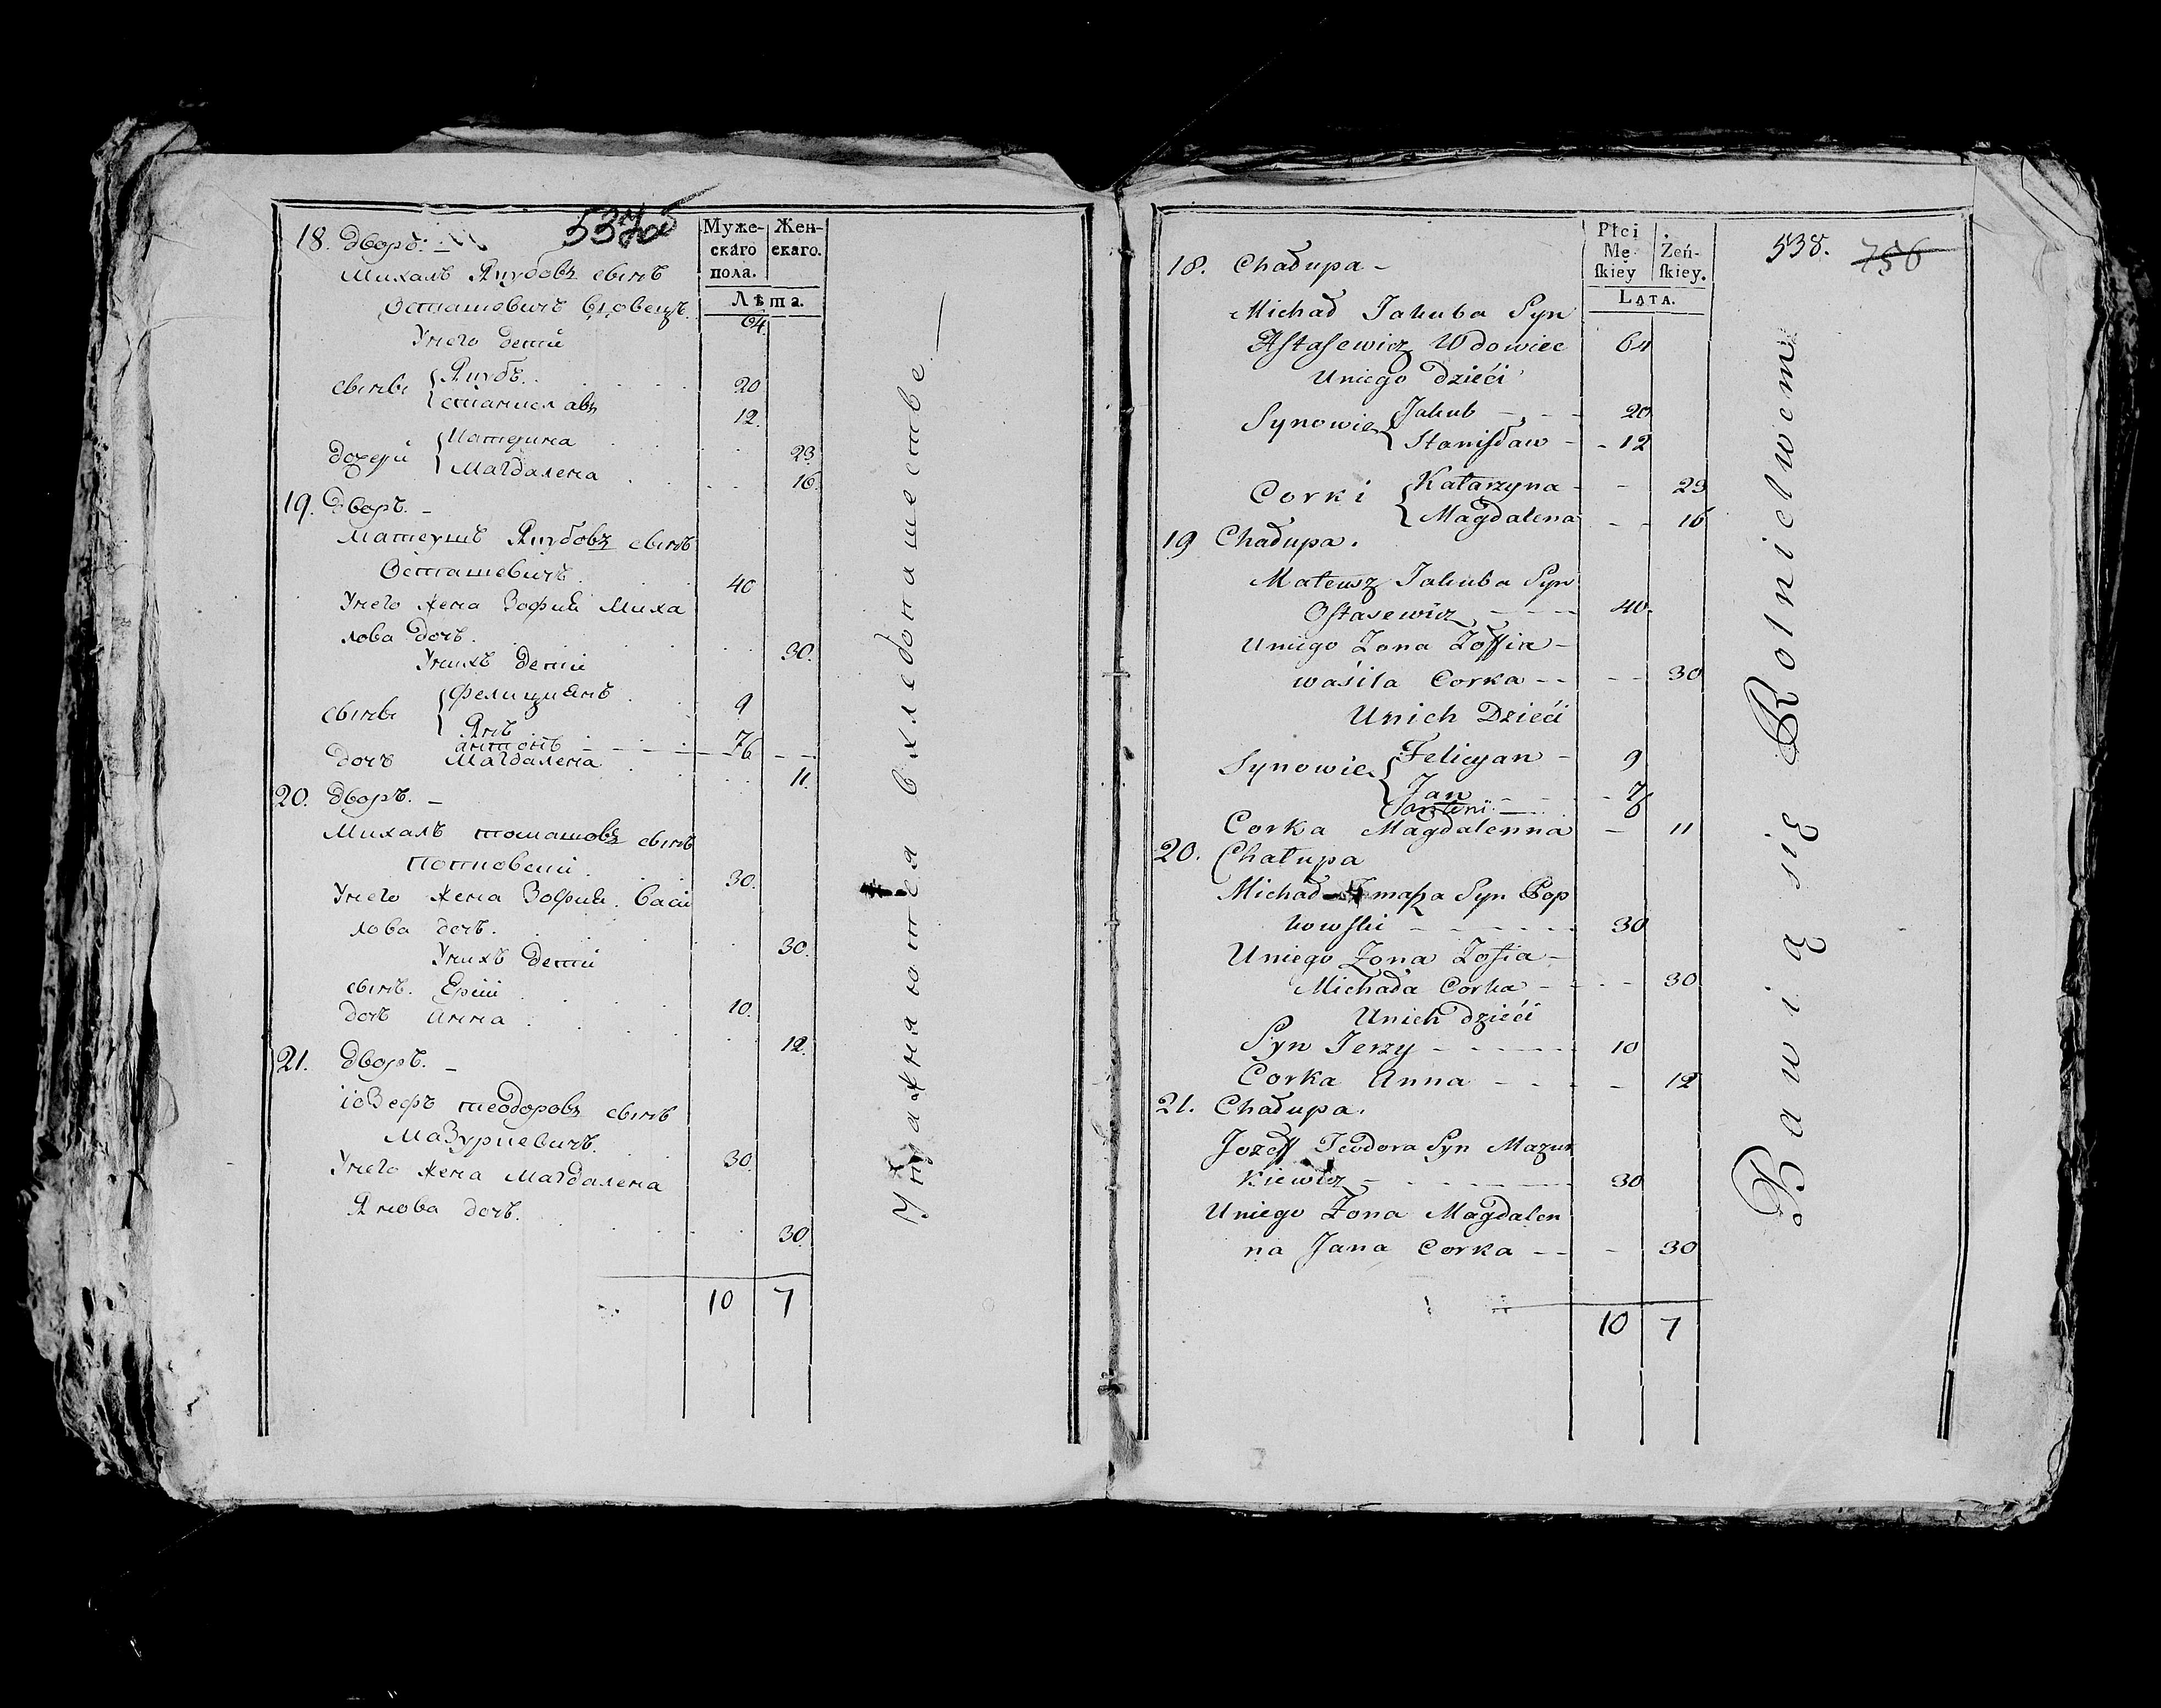 18. Дворъ.
Михалъ Якубовъ сынъ
Осташовичъ вдовецъ. 64
Унего дети
сыны Якубъ. 20
станиславъ 12.
дочери Катерина 23.
Магдалена 16.
19. Дворъ. –
Матеушъ Якубовъ сынъ
Осташевичъ. 40
Унего жена Зофия Миха
лова дочъ. 30.
Унихъ дети
сыны Фелициянъ 9
Янъ 7
антонъ 6
дочъ Магдалена 11.
20. дворъ. –
Михалъ томашовъ сынъ
30.
Унего жена Зофия. Васи
лова дочъ. 30.
Унихъ дети
сынъ. Ерiй 10.
дочъ Анна 12.
21. дворъ. –
iозефъ теодоровъ сынъ
Мазуркевичъ. 30.
Унего жена Магдалена
Янова дочъ. 30.
10 7
Муже-
скаго
пола.
Жен-
скаго.
Лѣта.
Упражняются вхлебопашестве. —
538. 756
Płci
Mę-
ſkiey
Żeń-
ſkiey.
LATA.
18. Chałupa –
Michał Jakuba Syn
Aſtaſewicz Wdowiec 64
Uniego Dzieći
Synowie Jakub – 20
Staniſław – 12
Corki Katarzyna – 23
Magdalena – 16
19 Chałupa.
Mateusz Jakuba Syn
Oſtasewicz – 40.
Uniego Zona Zoffia –
waśila Corka – 30
Unich Dzieći
Synowie Felicyan – 9
Jan – 7
antoni – 6
Corka Magdalenna – 11
20. Chałupa
Michał Syn Pop
kowſki – 30
Uniego Zona Zofia –
Michała Corka – 30
Unich dzieći
Syn Jerzy – 10
Corka Anna – 12
21. Chałupa.
Jozeff Teodora Syn Mazur
kiewicz – 30
Uniego Zona Magdalen
na Jana Corka – 30
10 7
Bawią się Rolnictwem